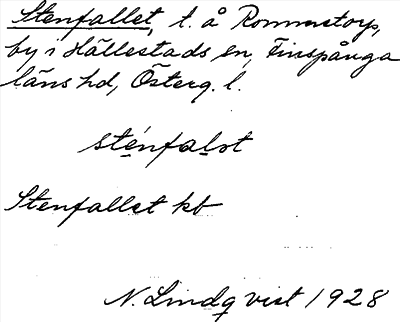 Stenfallet, t. å Rommetorp,
by i Hällestads sn, Finspånga
läns hd, Österg. l.
sténfalot
Stenfallet kb
N. Lindqvist 1928